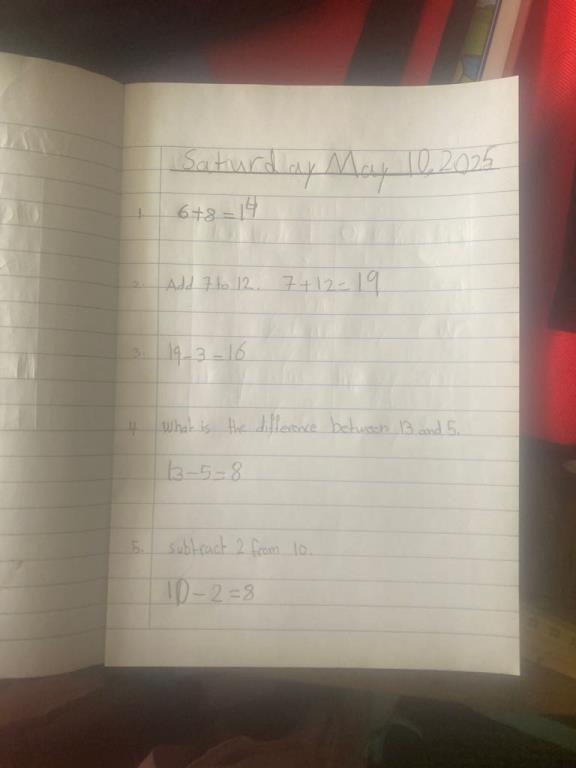 Saturday May 10, 2025
1. 6+8=14
2. Add 7 to 12. 7+12=19
3. 19-3=16
4. What is the difference between 13 and 5.
13-5=8
5. subtract 2 from 10.
10-2=8